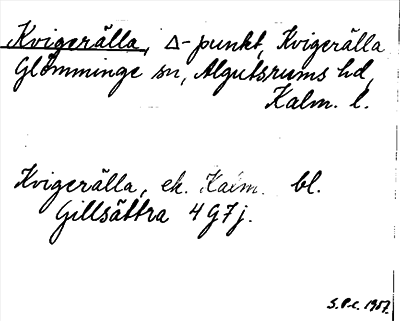 Kvigerälla, Δ-punkt, Kvigerälla
Glömminge sn, Algutsrums hd,
Kalm. l.
Kvigerälla, ek. Kalm. bl.
Gillsättra 4G7j.
S.P.c. 1957.